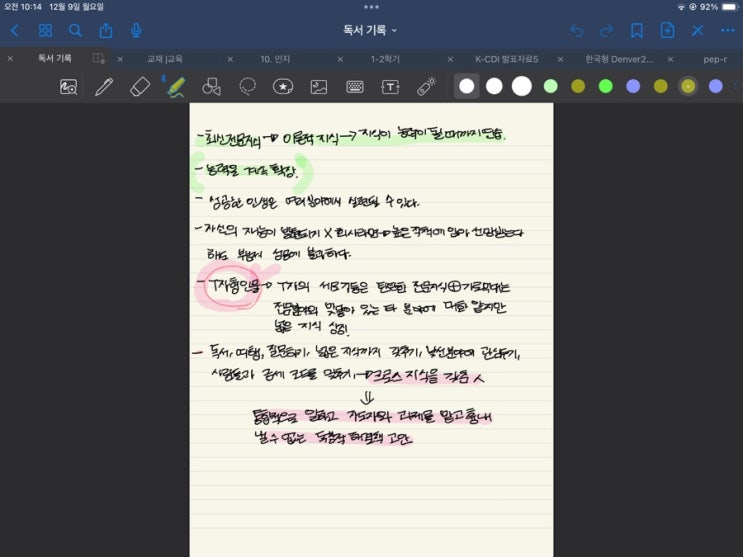 오전 10:14 12월 9일 월요일
92%
독서 기록
독서 기록
교재 |교육
10. 인지
1-2학기
K-CDI 발표자료5
한국형 Denver2...
pep-r
- 최신전문지식 → 이론적 지식 → 지식이 능력이 될 때까지 연습.
- 능력을 계속 확장.
- 성공한 인생은 여러분야에서 실현될 수 있다.
- 자신의 재능이 발휘되지 X 회사라면 → 높은 직책에 앉아 선망받는다
해도 부분적 성공에 불과하다.
- T자형인물 → T자의 세로기둥은 탄탄한 전문지식 ⊕ 가로막대는
전문분야와 맞닿아 있는 타 분야에 대한 얕지만
넓은 지식 상징.
- 독서, 여행, 질문하기, 넓은 지식까지 갖추기, 낯선분야에 관심두기,
사람들과 코드를 맞추기, → 크로스 지식을 갖춤
⇓
통합적으로 일하고 지도자와 과제를 맡고 흉내
낼 수 없는 독창적 해결책 고안